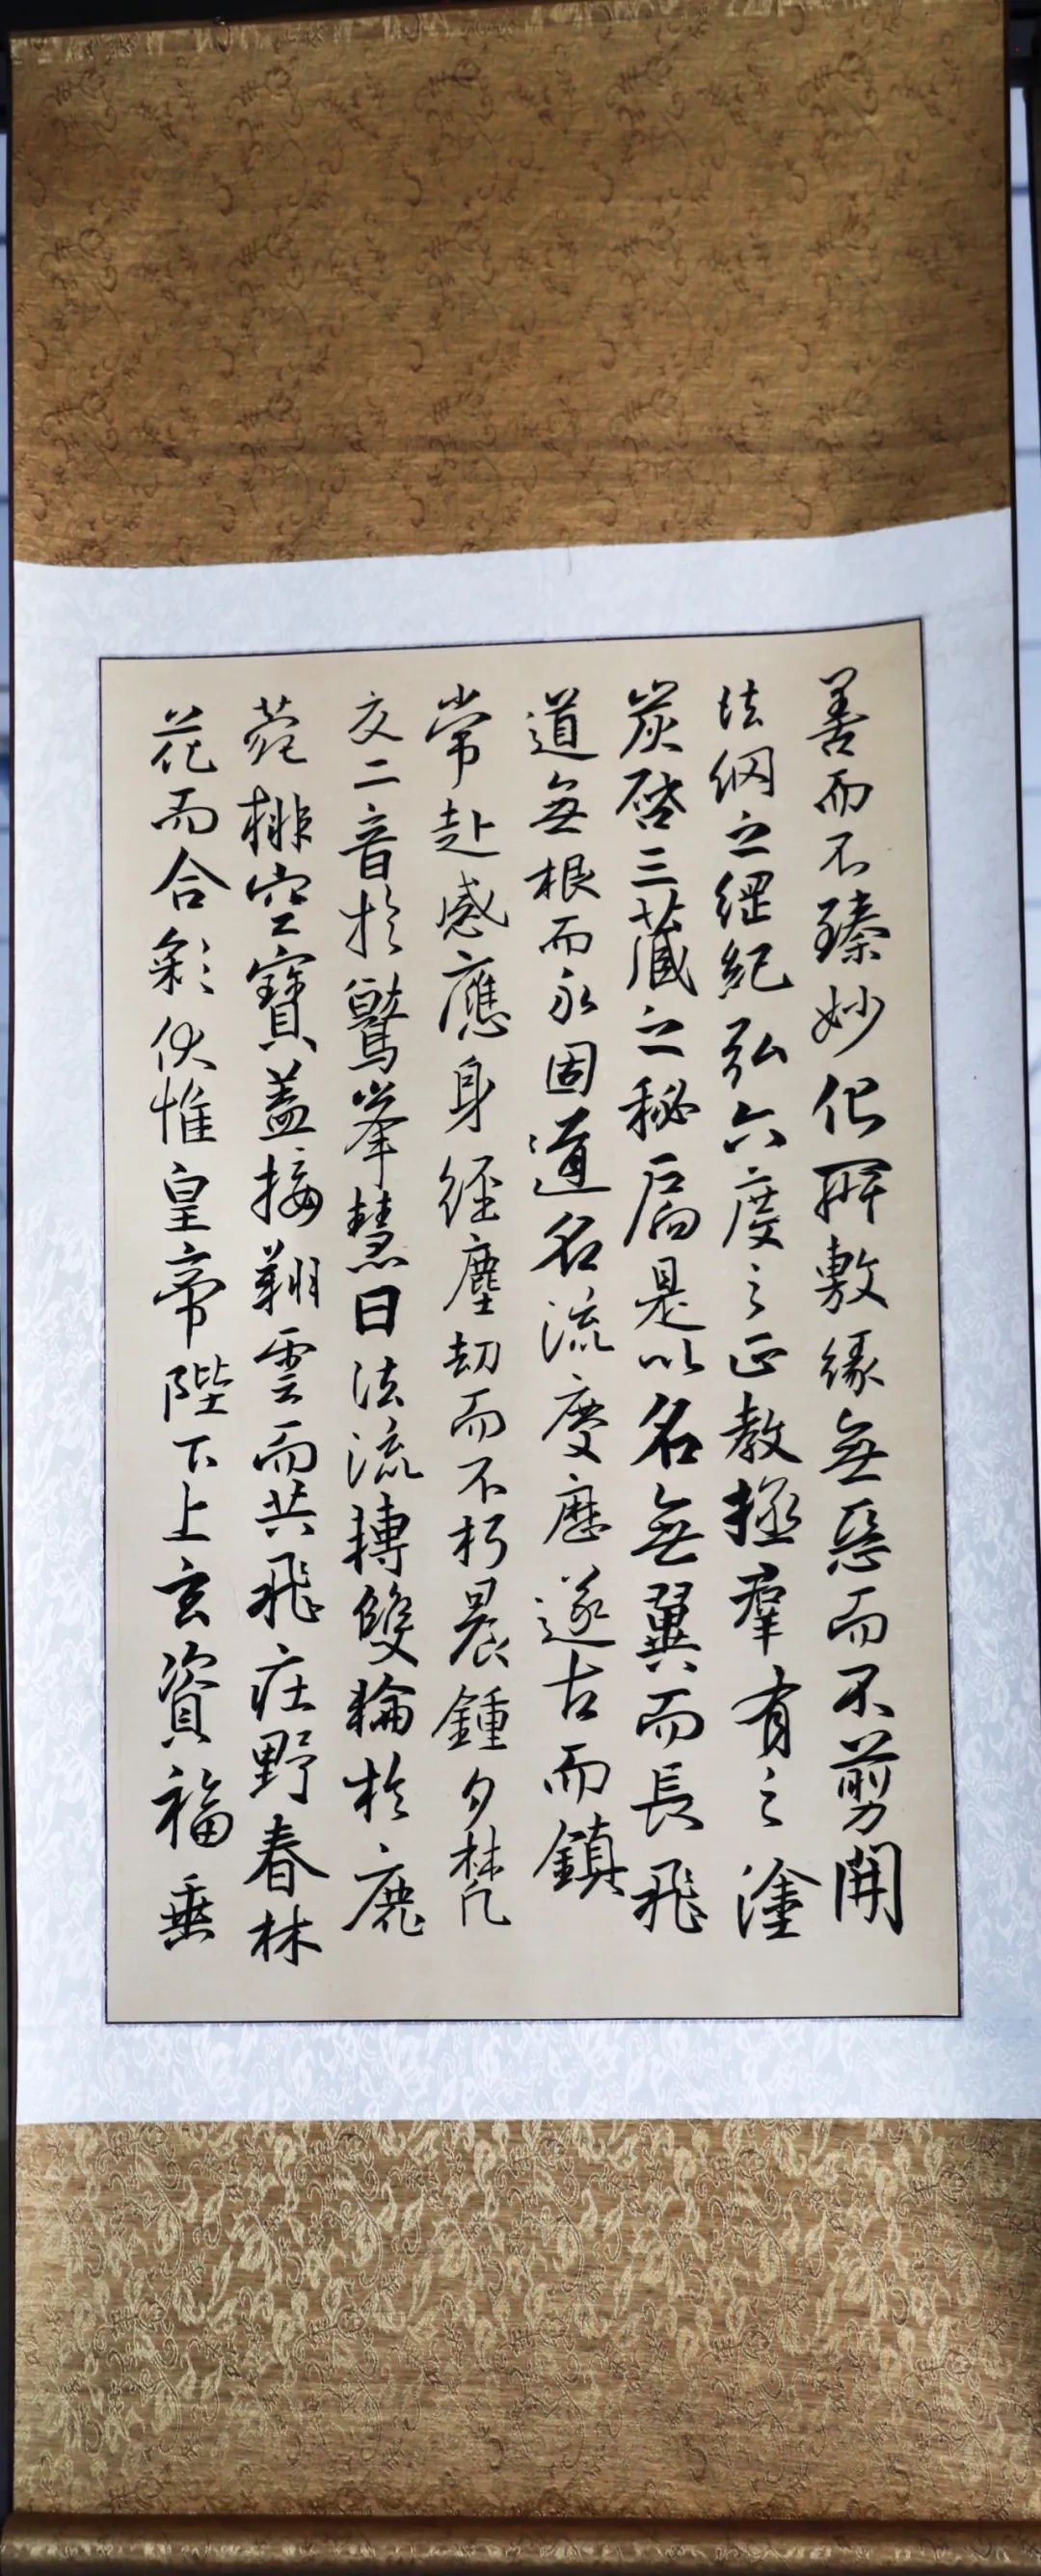 善而不臻妙化遐敷緣無惡而不剪開
法網之綱紀弘六度之正教拯群有之塗
炭啓三藏之秘扃是以名無翼而長飛
道無根而永固道名流慶歷遂古而鎮
常赴感應身經塵劫而不朽晨鍾夕梵
交二音於鷲峯慧日法流轉雙輪於鹿
菀排空寶蓋接翔雲而共飛莊野春林
花而合彩伏惟皇帝陛下上玄資福垂